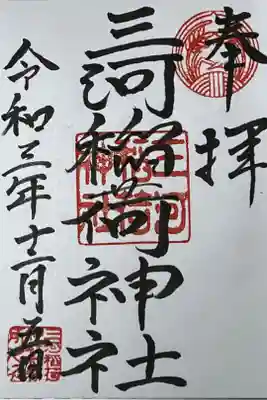 奉拝
三河稲荷神社
令和三年十二月五日